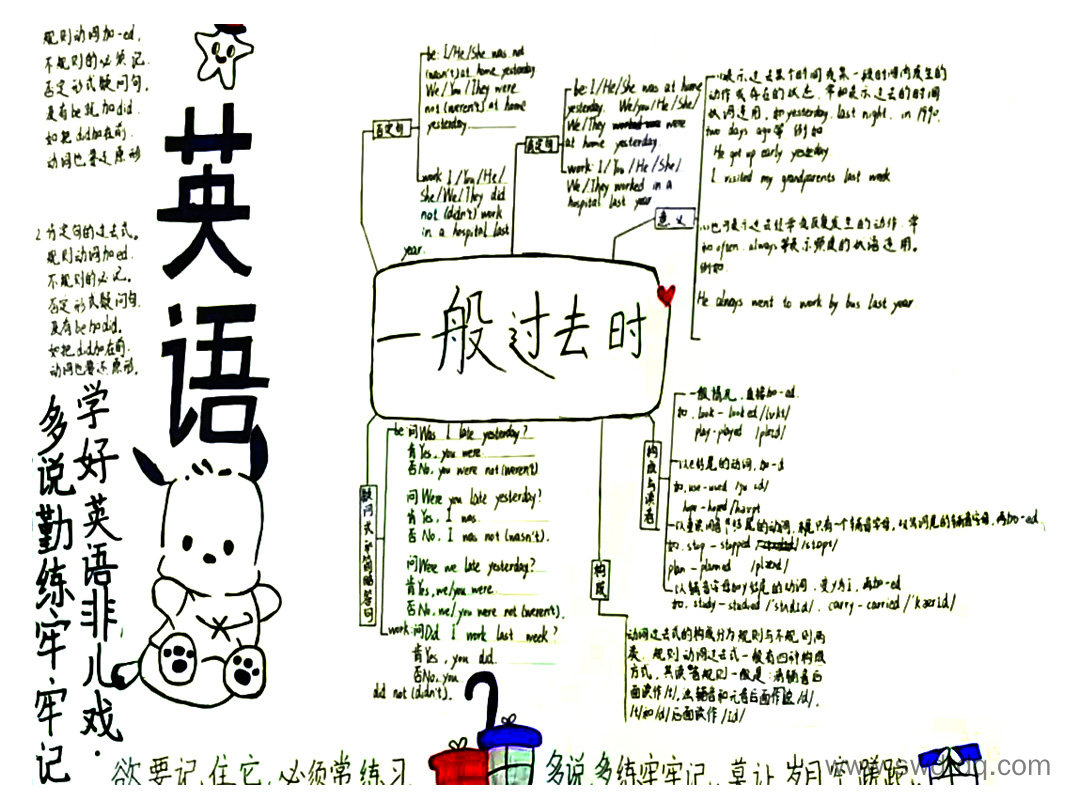 规则动词加-ed,
不规则的必须记
否定形式疑问句,
没有be就加did.
如把did加在前.
动词也要还原形
2. 肯定句的过去式。
规则动词加ed.
不规则的必记。
否定形式疑问句
没有be加did,
如把did加在前.
动词也要还原形.
英语
学好英语非儿戏.
多说勤练牢牢记
否定句
be: I/He/She was not
(wasn't) at home yesterday
We/You/They were
not (weren't) at home
yesterday.
work I/You/He/
She/We/They did
not (didn't) work
in a hospital last
year.
肯定句
be: I/He/She was at home
yesterday. We/you/He/She/
We/They were
at home yesterday.
work: I/You/He/She/
We/They worked in a
hospital last year
意义
表示过去某个时间或某一段时间内发生的
动作或存在的状态. 常和表示过去的时间
状词连用. 如yesterday. last night. in 1990,
two days ago等 例如
He got up early yesterday
I visited my grandparents last week
也可表示过去经常或反复发生的动作. 常
和often. always等表示频度的状语连用。
例如.
He always went to work by bus last year
一般过去时
疑问式和简略答句
be: 问Was I late yesterday?
肯Yes, you were.
否No, you were not (weren't)
问Were you late yesterday?
肯Yes, I was.
否No, I was not (wasn't).
问Were we late yesterday?
肯Yes, we/you were.
否No, we/you were not (weren't).
work: 问Did I work last week?
肯Yes, you did.
否No, you
did not (didn't).
构成
动词过去式的构成分为规则与不规则两
类. 规则动词过去式一般有四种构成
方式. 其读音规则一般是: 清辅音后
面读作/t/, 浊辅音和元音后面作读/d/,
/t/和/d/后面读作/id/
构成与读音
一般情况, 直接加-ed.
如. look - looked /lukt/
play-played /pleid/
以e结尾的动词, 加-d
如. use-used
hope-hoped
如. stop - stopped /stopt/
plan - planned
以辅音字母加y结尾的动词, 变y为i, 再加-ed
如. study - studied /'stʌdid/. carry - carried /'kærid/
欲要记住它,必须常练习
多说多练牢牢记, 莫让岁月牢蹉跎